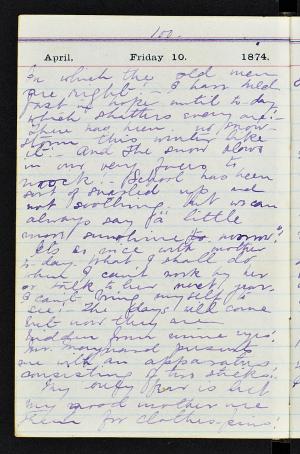 100.
April, Friday 10. 1874.
In which the old men
are right - I have held
fast to hope until to day
which shatters every one:-
There has been no snow-
storm this winter like
it:- And the snow blows
in our very faces to
mock. School has been
sort of snarled up and
not soothing but we can
always say "a little
more sunshine to-morrow"!
It's so nice with mother
to-day. What I shall do
when I can't work by her
or talk to her next year
I can't bring myself to
see! The days will come
but now they are
hidden from mine eyes!
Mr. presents
me with an apparatus
consisting of two sticks!
My only fear is lest
my good mother use
them for clothes-pins!